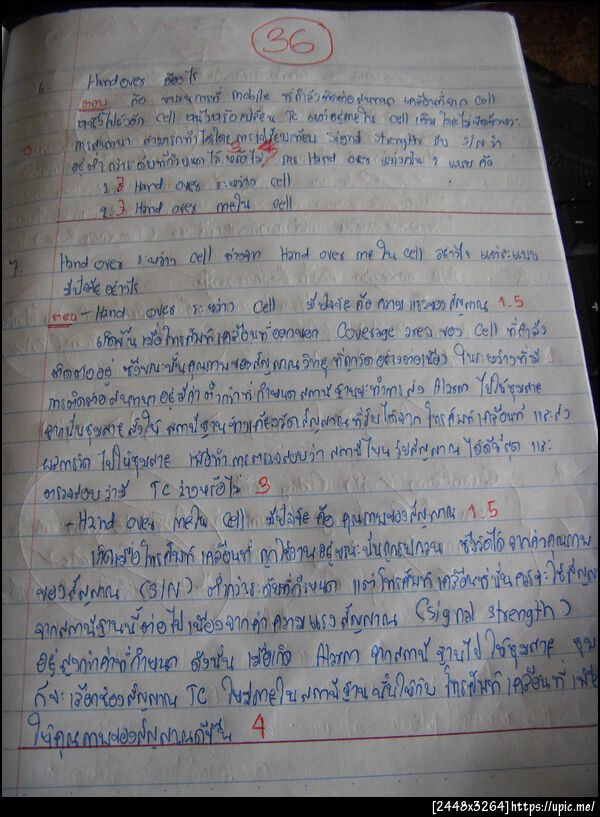 36
6. Hand over คืออะไร
ตอบ คือ ขบวนการที่ mobile ที่กำลังติดต่อสนทนา เคลื่อนที่จาก cell
หนึ่งไปยังอีก cell หนึ่งหรือเปลี่ยน TC แต่อยู่ภายใน cell เดิม โดยไม่
การสนทนา สามารถทำได้โดยการเปรียบเทียบ signal strength กับ S/N ว่า
อยู่ต่ำกว่าระดับที่กำหนดไว้หรือไม่ การ Hand over แบ่งเป็น 2 แบบ คือ
1. Hand over ระหว่าง cell
2. Hand over ภายใน cell
7. Hand over ระหว่าง cell ต่างจาก Hand over ภายใน cell อย่างไร แต่ละแบบ
มีปัจจัยอย่างไร
ตอบ - Hand over ระหว่าง Cell มีปัจจัย คือ ความแรงของสัญญาณ 1.5
เกิดขึ้นเมื่อโทรศัพท์เคลื่อนที่ออกนอก Coverage area ของ Cell ที่กำลัง
ติดต่ออยู่ ซึ่งขณะนั้นคุณภาพของสัญญาณวิทยุที่ถูกวัดอย่างต่อเนื่อง ในระหว่างที่มี
การติดต่อสนทนาอยู่มีค่าต่ำกว่าที่กำหนดสถานีฐานจะทำการส่ง Alarm ไปให้ชุมสาย
จากนั้นชุมสายสั่งให้ สถานีฐานข้างเคียงวัดสัญญาณที่รับได้จากโทรศัพท์เคลื่อนที่ และส่ง
ผลการวัดไปให้ชุมสาย เพื่อทำการตรวจสอบว่า สถานีไหนรับสัญญาณได้ดีที่สุด และ
ตรวจสอบว่ามี TC ว่างหรือไม่ 3
- Hand over ภายใน Cell มีปัจจัย คือ คุณภาพของสัญญาณ 1.5
เกิดเมื่อโทรศัพท์เคลื่อนที่ถูกใช้งานอยู่ขณะนั้นถูกรบกวน ซึ่งวัดได้จากค่าคุณภาพ
ของสัญญาณ (S/N) ต่ำกว่าระดับที่กำหนด แต่โทรศัพท์เคลื่อนที่นั้นควรจะใช้สัญญาณ
จากสถานีฐานนี้ต่อไปเนื่องจากค่าความแรงสัญญาณ (Signal strength)
อยู่สูงกว่าค่าที่กำหนด ดังนั้น เมื่อเกิด Alarm จากสถานีฐานไปให้ชุมสาย ชุม
ก็จะเลือกช่องสัญญาณ TC ใหม่ภายในสถานีฐานนั้นให้กับโทรศัพท์เคลื่อนที่เพื่อ
ให้คุณภาพของสัญญาณดีขึ้น 4
[2448x3264]https://upic.me/